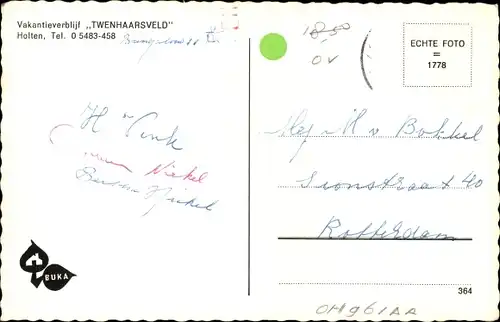 Vakantieverblijf „TWENHAARSVELD"
Holten, Tel. 0 5483-458
18,50
OV
ECHTE FOTO
=
1778
H v Vink
Niekel
Mej M v Bokkel
Sionstraat 40
Rotterdam
BUKA
364
OH961AA